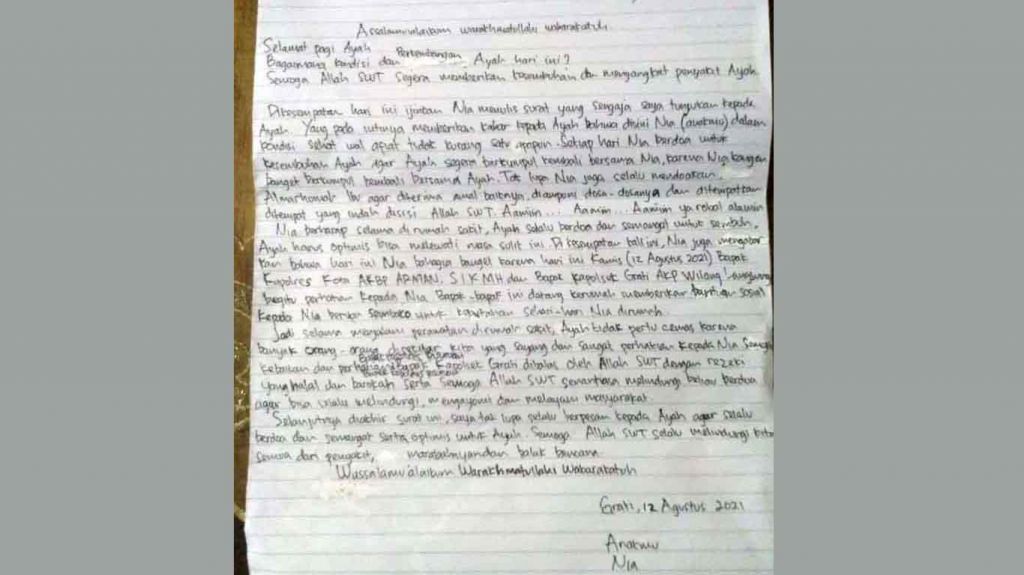 Assalamualaikum warakhmatullahi wabarakatuh
Selamat pagi Ayah
Bagaimana kondisi dan Perkembangan Ayah hari ini?
Semoga Allah SWT Segera memberikan kesembuhan dan mengangkat penyakit Ayah.
Dikesempatan hari ini ijinkan Nia menulis surat yang sengaja saya tunjukan kepada
Ayah. Yang pada intinya memberikan kabar kepada Ayah bahwa disini Nia (anakmu) dalam
kondisi sehat wal afiat tidak kurang satu apapun. Setiap hari Nia berdoa untuk
kesembuhan Ayah agar Ayah segera berkumpul kembali bersama Nia, karena Nia kangen
banget berkumpul kembali bersama Ayah. Tak lupa Nia juga selalu mendoakan
Almarhumah Ibu agar diterima amal baiknya, diampuni dosa-dosanya dan ditempatkan
ditempat yang indah disisi Allah SWT. Aamiin... Aamiin... Aamiin ya robal alamin
Nia berharap selama di rumah sakit, Ayah selalu berdoa dan semangat untuk sembuh.
Ayah harus optimis bisa melewati masa sulit ini. Dikesempatan kali ini, Nia juga mengabar
kan bahwa hari ini Nia bahagia banget karena hari ini Kamis (12 Agustus 2021) Bapak
Kapolres Kota AKBP ARMAN, S.I.K MH dan Bapak Kapolsek Grati AKP Wilang
begitu perhatian kepada Nia. Bapak-bapak ini datang kerumah memberikan bantuan sosial
kepada Nia berupa sembako untuk kebutuhan sehari-hari Nia dirumah.
Jadi selama menjalani perawatan dirumah sakit, Ayah tidak perlu cemas karena
banyak orang-orang disekitar kita yang sayang dan sangat perhatian kepada Nia. Semoga
kebaikan dan perhatian Bapak Kapolsek Grati dibalas oleh Allah SWT dengan rezeki
yang halal dan barokah serta Semoga Allah SWT senantiasa melindungi beliau berdua
agar bisa selalu melindungi, mengayomi dan melayani masyarakat.
Selanjutnya diakhir surat ini, saya tak lupa selalu berpesan kepada Ayah agar selalu
berdoa dan semangat serta optimis untuk Ayah. Semoga Allah SWT selalu melindungi kita
semua dari penyakit, marabahaya dan balak bencana.
Wassalamu'alaikum Warakhmatullahi Wabarakatuh
Grati, 12 Agustus 2021
Anakmu
Nia